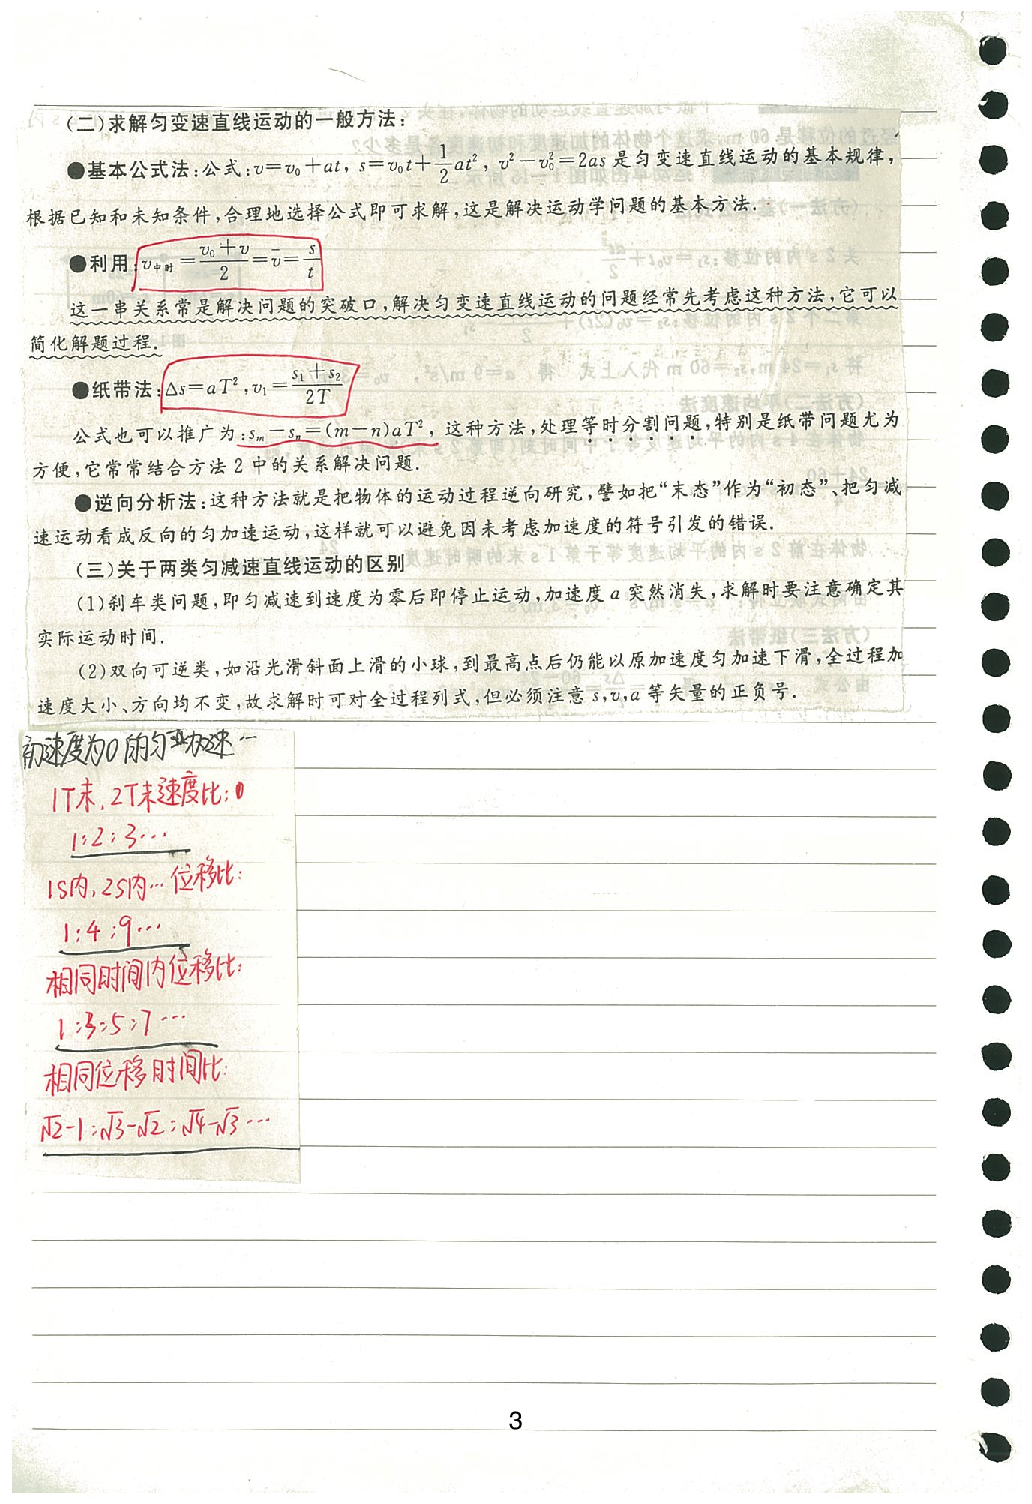 (二)求解匀变速直线运动的一般方法:
●基本公式法:公式:v=v₀+at, s=v₀t+\frac{1}{2}at², v²-v₀²=2as 是匀变速直线运动的基本规律,
根据已知和未知条件,合理地选择公式即可求解,这是解决运动学问题的基本方法.
●利用:v_{中时}=\frac{v₀+v}{2}=\bar{v}=\frac{s}{t}
这一串关系常是解决问题的突破口,解决匀变速直线运动的问题经常先考虑这种方法,它可以
简化解题过程.
●纸带法:Δs=aT², v₁=\frac{s₁+s₂}{2T}
公式也可以推广为:sₘ-sₙ=(m-n)aT², 这种方法,处理等时分割问题,特别是纸带问题尤为
方便,它常常结合方法2中的关系解决问题.
●逆向分析法:这种方法就是把物体的运动过程逆向研究,譬如把“末态”作为“初态”、把匀减
速运动看成反向的匀加速运动,这样就可以避免因未考虑加速度的符号引发的错误.
(三)关于两类匀减速直线运动的区别
(1)刹车类问题,即匀减速到速度为零后即停止运动,加速度a突然消失,求解时要注意确定其
实际运动时间.
(2)双向可逆类,如沿光滑斜面上滑的小球,到最高点后仍能以原加速度匀加速下滑,全过程加
速度大小、方向均不变,故求解时可对全过程列式,但必须注意s,v,a等矢量的正负号.
初速度为0的匀变加速…
1T末,2T末速度比:
1:2:3…
1S内,2S内…位移比:
1:4:9…
相同时间内位移比:
1:3:5:7…
相同位移时间比:
√2-1:√3-√2:√4-√3…
3